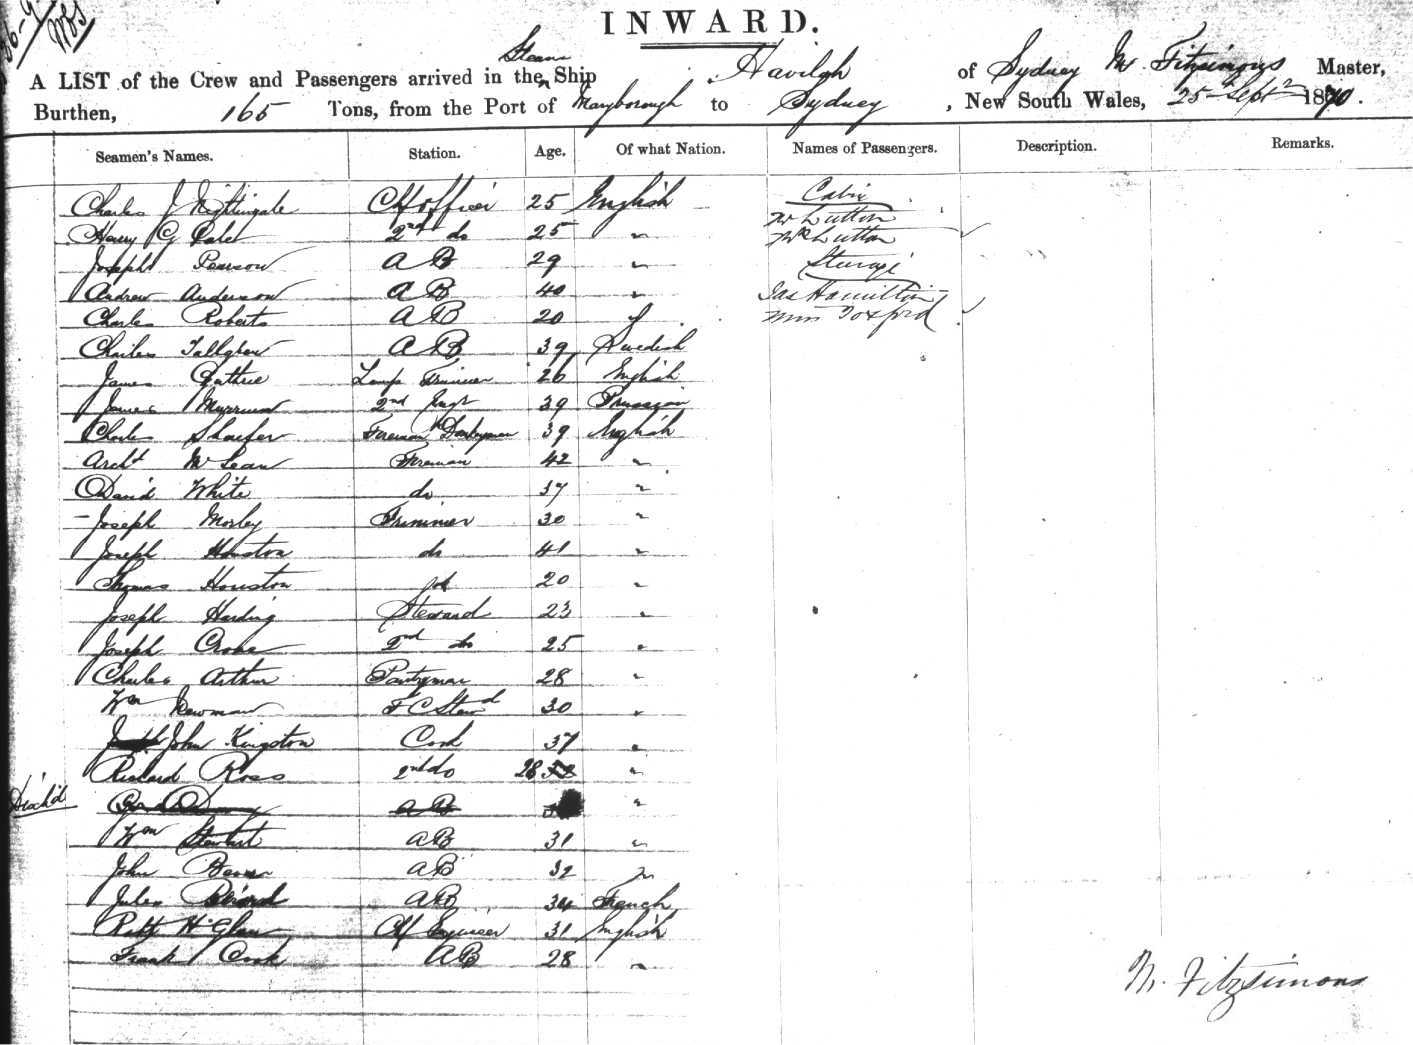 INWARD.
A LIST of the Crew and Passengers arrived in the Steam Ship Havilah of Sydney M. Fitzsimons Master,
Burthen, 165 Tons, from the Port of Maryborough to Sydney, New South Wales, 25 Sept 1870.
Seamen's Names. Station. Age. Of what Nation. Names of Passengers. Description. Remarks.
Charles J Nightingale Chf Officer 25 English Cabin
Harry G 2nd do 25 " Mr Lutton
Mrs Lutton
Joseph Pearson AB 29 " Steerage
Andrew Anderson AB 40 " Jas Hamilton
Charles Roberts AB 20 " Miss Foxford
Charles Tallgren AB 39 Swedish
James Guthrie Lamp Trimmer 26 English
James 2nd Engr 39 Prussian
Charles Shaefer Fireman Donkeyman 39 English
Archd McLean Fireman 42 "
David White do 37 "
Joseph Morley Trimmer 30 "
Joseph Houston do 41 "
Thomas Houston do 20 "
Joseph Harding Steward 23 "
Joseph Crone 2nd do 25 "
Charles Arthur Pantryman 28 "
Wm Newman F C Stewd 30 "
John Kingston Cook 37 "
Richard Ross 2nd do 28 "
Disch'd AB "
Wm Stewart AB 31 "
John AB 32 "
Jules AB 34 French
Robt Chf Engineer 31 English
Frank Cook AB 28 "
M. Fitzsimons